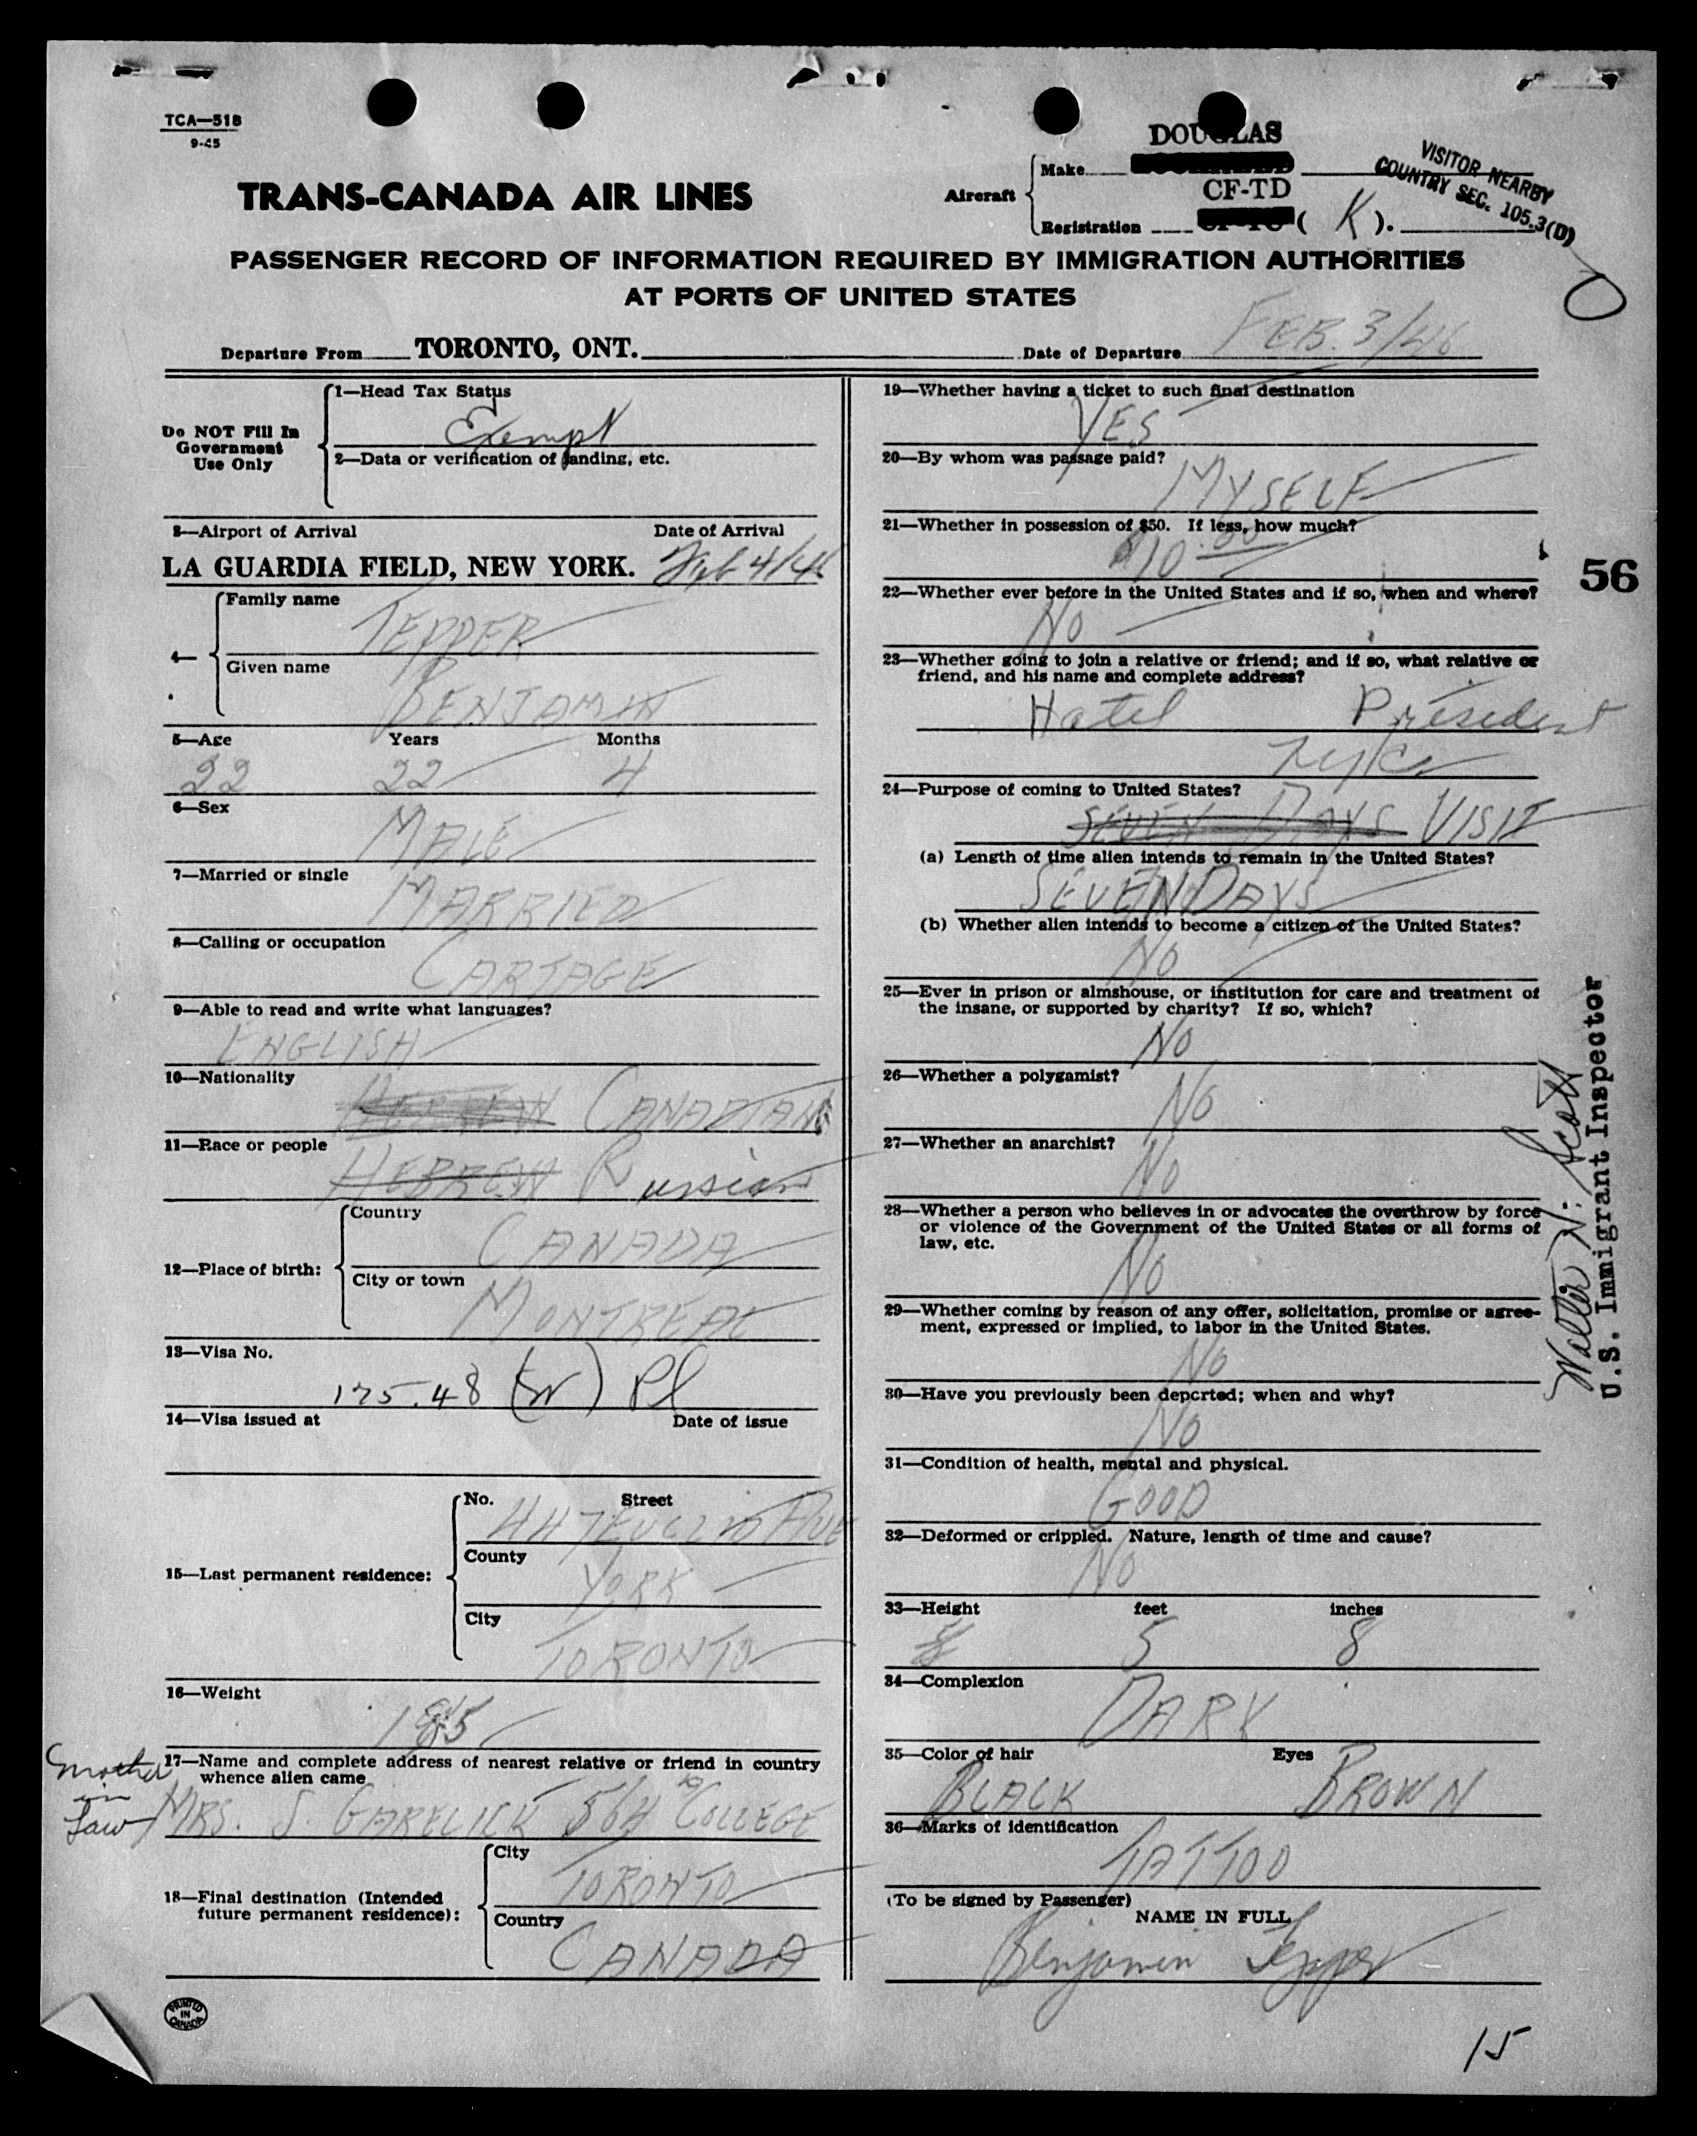 TCA—518
9-45
DOUGLAS
Make
VISITOR NEARBY
COUNTRY SEC. 105.3(D)
TRANS-CANADA AIR LINES
Aircraft
CF-TD
Registration ( K ).
PASSENGER RECORD OF INFORMATION REQUIRED BY IMMIGRATION AUTHORITIES
AT PORTS OF UNITED STATES
Departure From TORONTO, ONT. Date of Departure FEB. 3/46
Do NOT Fill In
Government
Use Only
1—Head Tax Status
Exempt
2—Data or verification of landing, etc.
3—Airport of Arrival Date of Arrival
LA GUARDIA FIELD, NEW YORK. Feb 4/46
4—
Family name
TEPPER
Given name
BENJAMIN
5—Age Years Months
22 22 4
6—Sex
MALE
7—Married or single
MARRIED
8—Calling or occupation
CARTAGE
9—Able to read and write what languages?
ENGLISH
10—Nationality
HEBREW CANADIAN
11—Race or people
HEBREW Russian
12—Place of birth:
Country
CANADA
City or town
MONTREAL
13—Visa No.
175.48 (W) Pl
14—Visa issued at Date of issue
15—Last permanent residence:
No. Street
447 EUCLID AVE
County
YORK
City
TORONTO
16—Weight
185
17—Name and complete address of nearest relative or friend in country
whence alien came
mother
in
law
MRS. S. GARELICK 564 COLLEGE
18—Final destination (Intended
future permanent residence):
City
TORONTO
Country
CANADA
PRINTED
IN
CANADA
19—Whether having a ticket to such final destination
YES
20—By whom was passage paid?
MYSELF
21—Whether in possession of $50. If less, how much?
$10.00
22—Whether ever before in the United States and if so, when and where?
NO
23—Whether going to join a relative or friend; and if so, what relative or
friend, and his name and complete address?
Hotel President
24—Purpose of coming to United States?
SEVEN DAYS VISIT
(a) Length of time alien intends to remain in the United States?
SEVEN DAYS
(b) Whether alien intends to become a citizen of the United States?
NO
25—Ever in prison or almshouse, or institution for care and treatment of
the insane, or supported by charity? If so, which?
NO
26—Whether a polygamist?
NO
27—Whether an anarchist?
NO
28—Whether a person who believes in or advocates the overthrow by force
or violence of the Government of the United States or all forms of
law, etc.
NO
29—Whether coming by reason of any offer, solicitation, promise or agree-
ment, expressed or implied, to labor in the United States.
NO
30—Have you previously been deported; when and why?
NO
31—Condition of health, mental and physical.
GOOD
32—Deformed or crippled. Nature, length of time and cause?
NO
33—Height feet inches
5 8
34—Complexion
DARK
35—Color of hair Eyes
BLACK BROWN
36—Marks of identification
TATTOO
(To be signed by Passenger)
NAME IN FULL
Benjamin Tepper
56
Walter N. Scott
U.S. Immigrant Inspector
15